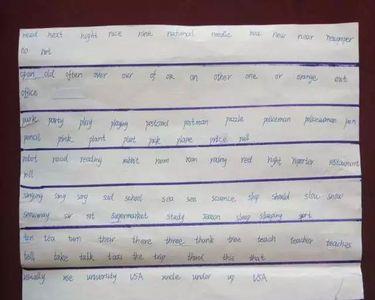 need next night nice nine national noodle nose new near newspaper
no not
open old often over our of or on other one or orange out
office
park party play playing postcard postman puzzle policeman policewoman pen
pencil pink plant plant pick plane price pull
robot road reading rabbit room rain rainy red right reporter restaurant
singing sing song sad school sea see science shop should slow snow
sir sit supermarket study season sleep sleeping sort
ten tea turn their there three thank tree teach teacher teaches
tell take talk taxi the trip third this that
usually use university USA uncle under up USA